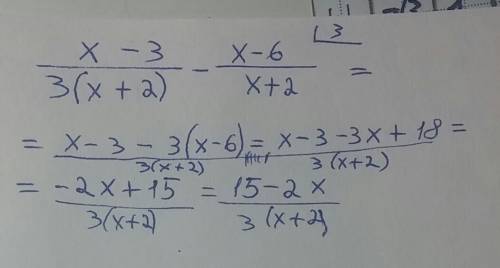 (x - 3)/(3(x + 2)) - (x - 6)/(x + 2) ⌊3 =
= (x - 3 - 3(x - 6))/(3(x+2)) = (x - 3 - 3x + 18)/(3(x+2)) =
= (-2x + 15)/(3(x+2)) = (15 - 2x)/(3(x+2))